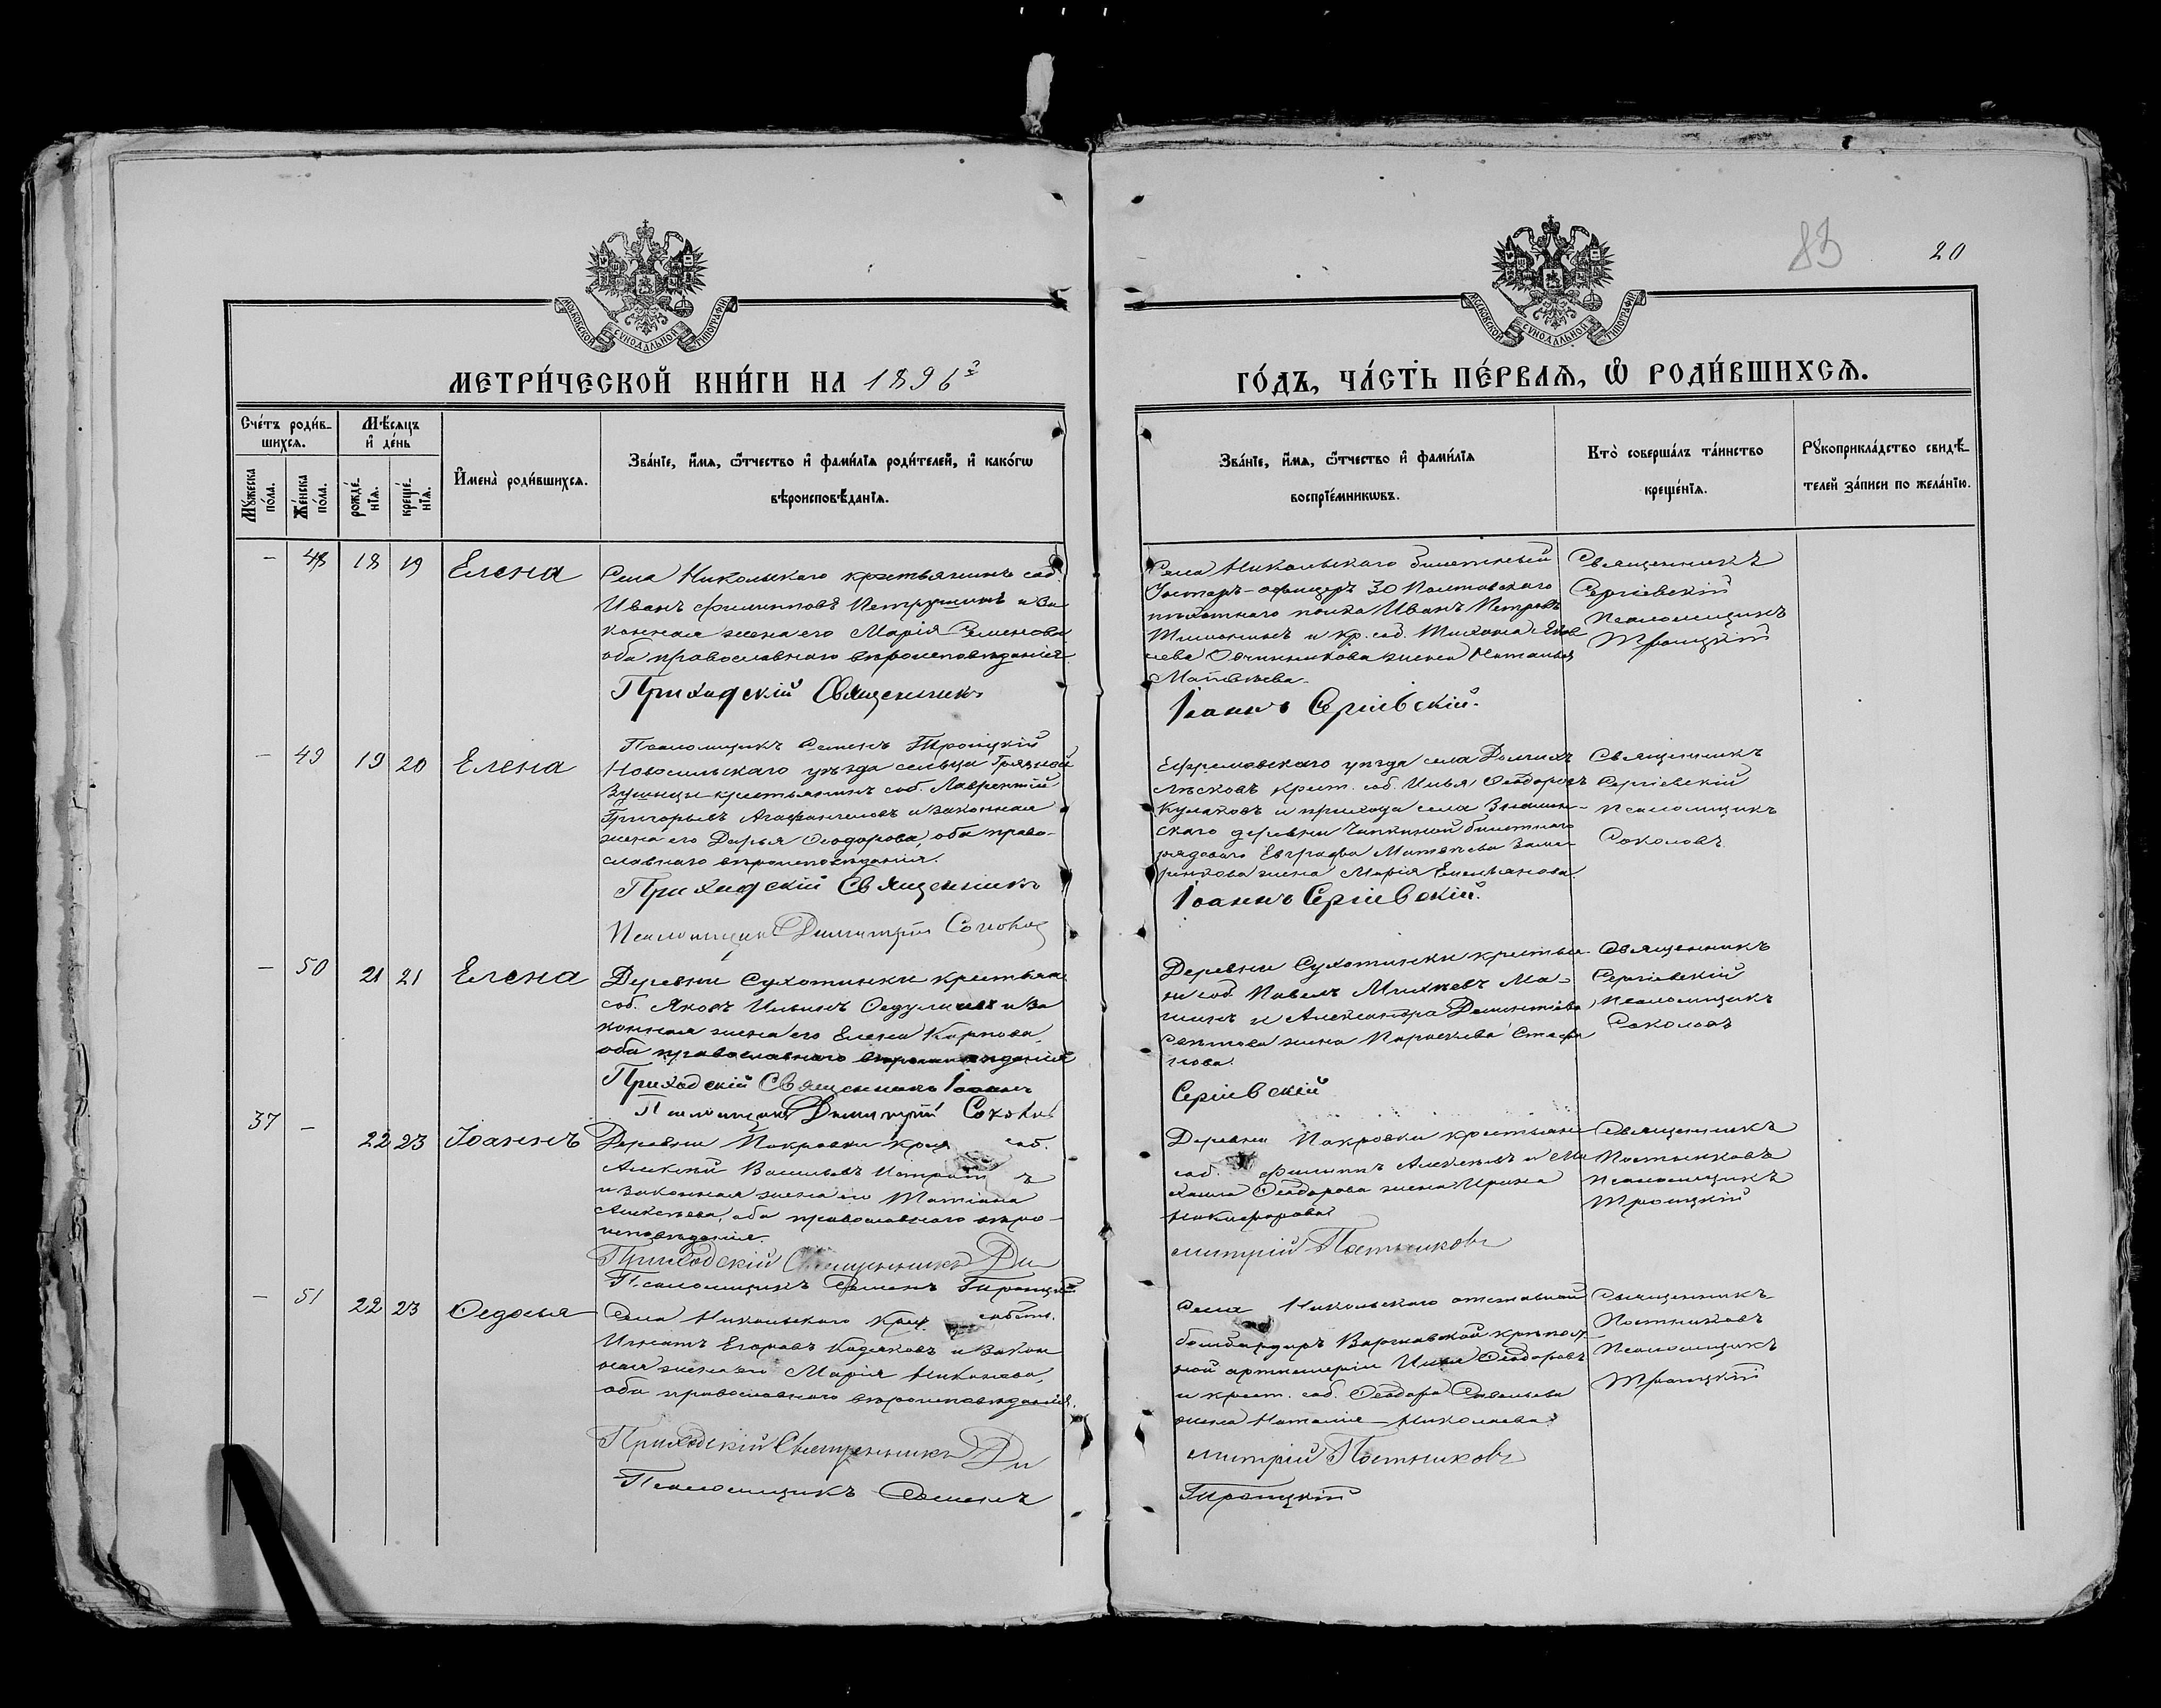 83
20
МОСКОВСКОЙ СѴНОДАЛЬНОЙ ТИПОГРАФІИ
МОСКОВСКОЙ СѴНОДАЛЬНОЙ ТИПОГРАФІИ
МЕТРИ́ЧЕСКОЙ КНИ́ГИ НА 1896 г
ГО́ДЪ, ЧА́СТЬ ПЕ́РВАЯ, Ѡ РОДИ́ВШИХСЯ.
Сче́тъ роди́в-
шихся.
Мѣ́сяцъ
и де́нь
Му́жеска
по́ла.
Же́нска
по́ла.
рожде́-
нїя.
креще́-
нїя.
И҆мена̀ роди́вшихся.
Зва́нїе, и҆́мя, ѻ҆́тчество и҆ фами́лїя роди́телей, и҆ како́гѡ
вѣроисповѣ́данїя.
Зва́нїе, и҆́мя, ѻ҆́тчество и҆ фами́лїя
воспрїе́мникѡвъ.
Кто̀ соверша́лъ та́инство
креще́нїя.
Рꙋкоприкла́дство свидѣ́-
телей за́писи по жела́нїю.
- 48 18 19 Елена
Села Никольскаго крестьянинъ соб.
Иванъ Филипповъ Петрушинъ и за
конная жена его Марія Семенова
оба православнаго вѣроисповѣданія
Приходскій Священникъ
Псаломщикъ Семенъ Троицкій
Села Никольскаго билетный
Унтеръ-офицеръ 30 Полтавскаго
пѣхотнаго полка Иванъ Петровъ
и кр. соб. Тихона
Овчинникова жена Наталья
Матвѣева
Іоаннъ Сергіевскій.
Священникъ
Сергіевскій
Псаломщикъ
Троицкій
- 49 19 20 Елена
Новосильскаго уѣзда сельца Грязной
Зушицы крестьянинъ соб. Лаврентій
Григорьевъ Агафангеловъ и законная
жена его Дарья Ѳеодорова, оба право-
славнаго вѣроисповѣданія.
Приходскій Священникъ
Псаломщикъ Димитрій Соколов
Ефремовскаго уѣзда села Долгихъ
Лѣсковъ крест. соб. Илья Ѳеодоровъ
Кулаковъ и прихода села Знамен-
скаго деревни билетнаго
рядоваго Евграфа Матвѣева
жена Марія Емельянова
Іоаннъ Сергіевскій.
Священникъ
Сергіевскій
Псаломщикъ
Соколовъ
- 50 21 21 Елена
Деревни Сухотинки крестьян.
соб. Яковъ Ильинъ и за
конная жена его Елена Карпова,
оба православнаго вѣроисповѣданія
Приходскій Священникъ Іоаннъ
Псаломщикъ Димитрій Соколов
Деревни Сухотинки крестья-
не соб. Павелъ Михѣевъ
и Александра
жена Параскева Стефа
нова.
Сергіевскій
Священникъ
Сергіевскій
Псаломщикъ
Соколовъ
37 - 22 23 Іоаннъ
Деревни Покровки соб.
Алексѣй Васильевъ
и законная жена его Татіана
Алексѣева, оба православнаго вѣро-
исповѣданія.
Приходскій Священникъ Ди
Псаломщикъ Семенъ Троицкій
Деревни Покровки крестьяне
соб. Филиппъ Алексѣевъ и Ми
хаила Ѳеодорова жена Ирина
Никифорова
митрій Постниковъ
Священникъ
Постниковъ
Псаломщикъ
Троицкій
- 51 22 23 Ѳедосья
Села Никольскаго собств.
Игнатъ Егоровъ и закон
ная жена его Марія
оба православнаго вѣроисповѣданія.
Приходскій Священникъ Ди
Псаломщикъ Семенъ
Села Никольскаго отставной
бомбардиръ Варшавской крѣпост-
ной артиллеріи Ѳеодоровъ
и крест. соб. Ѳеодора Савельева
жена Наталія Николаева
митрій Постниковъ
Троицкій
Священникъ
Постниковъ
Псаломщикъ
Троицкій